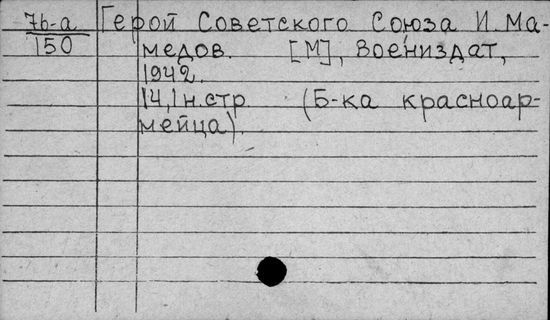 7б-а Герой Советского Союза И. Ма-
150 медов. [М], Воениздат,
1942.
14,1н.стр (Б-ка красноар-
мейца).